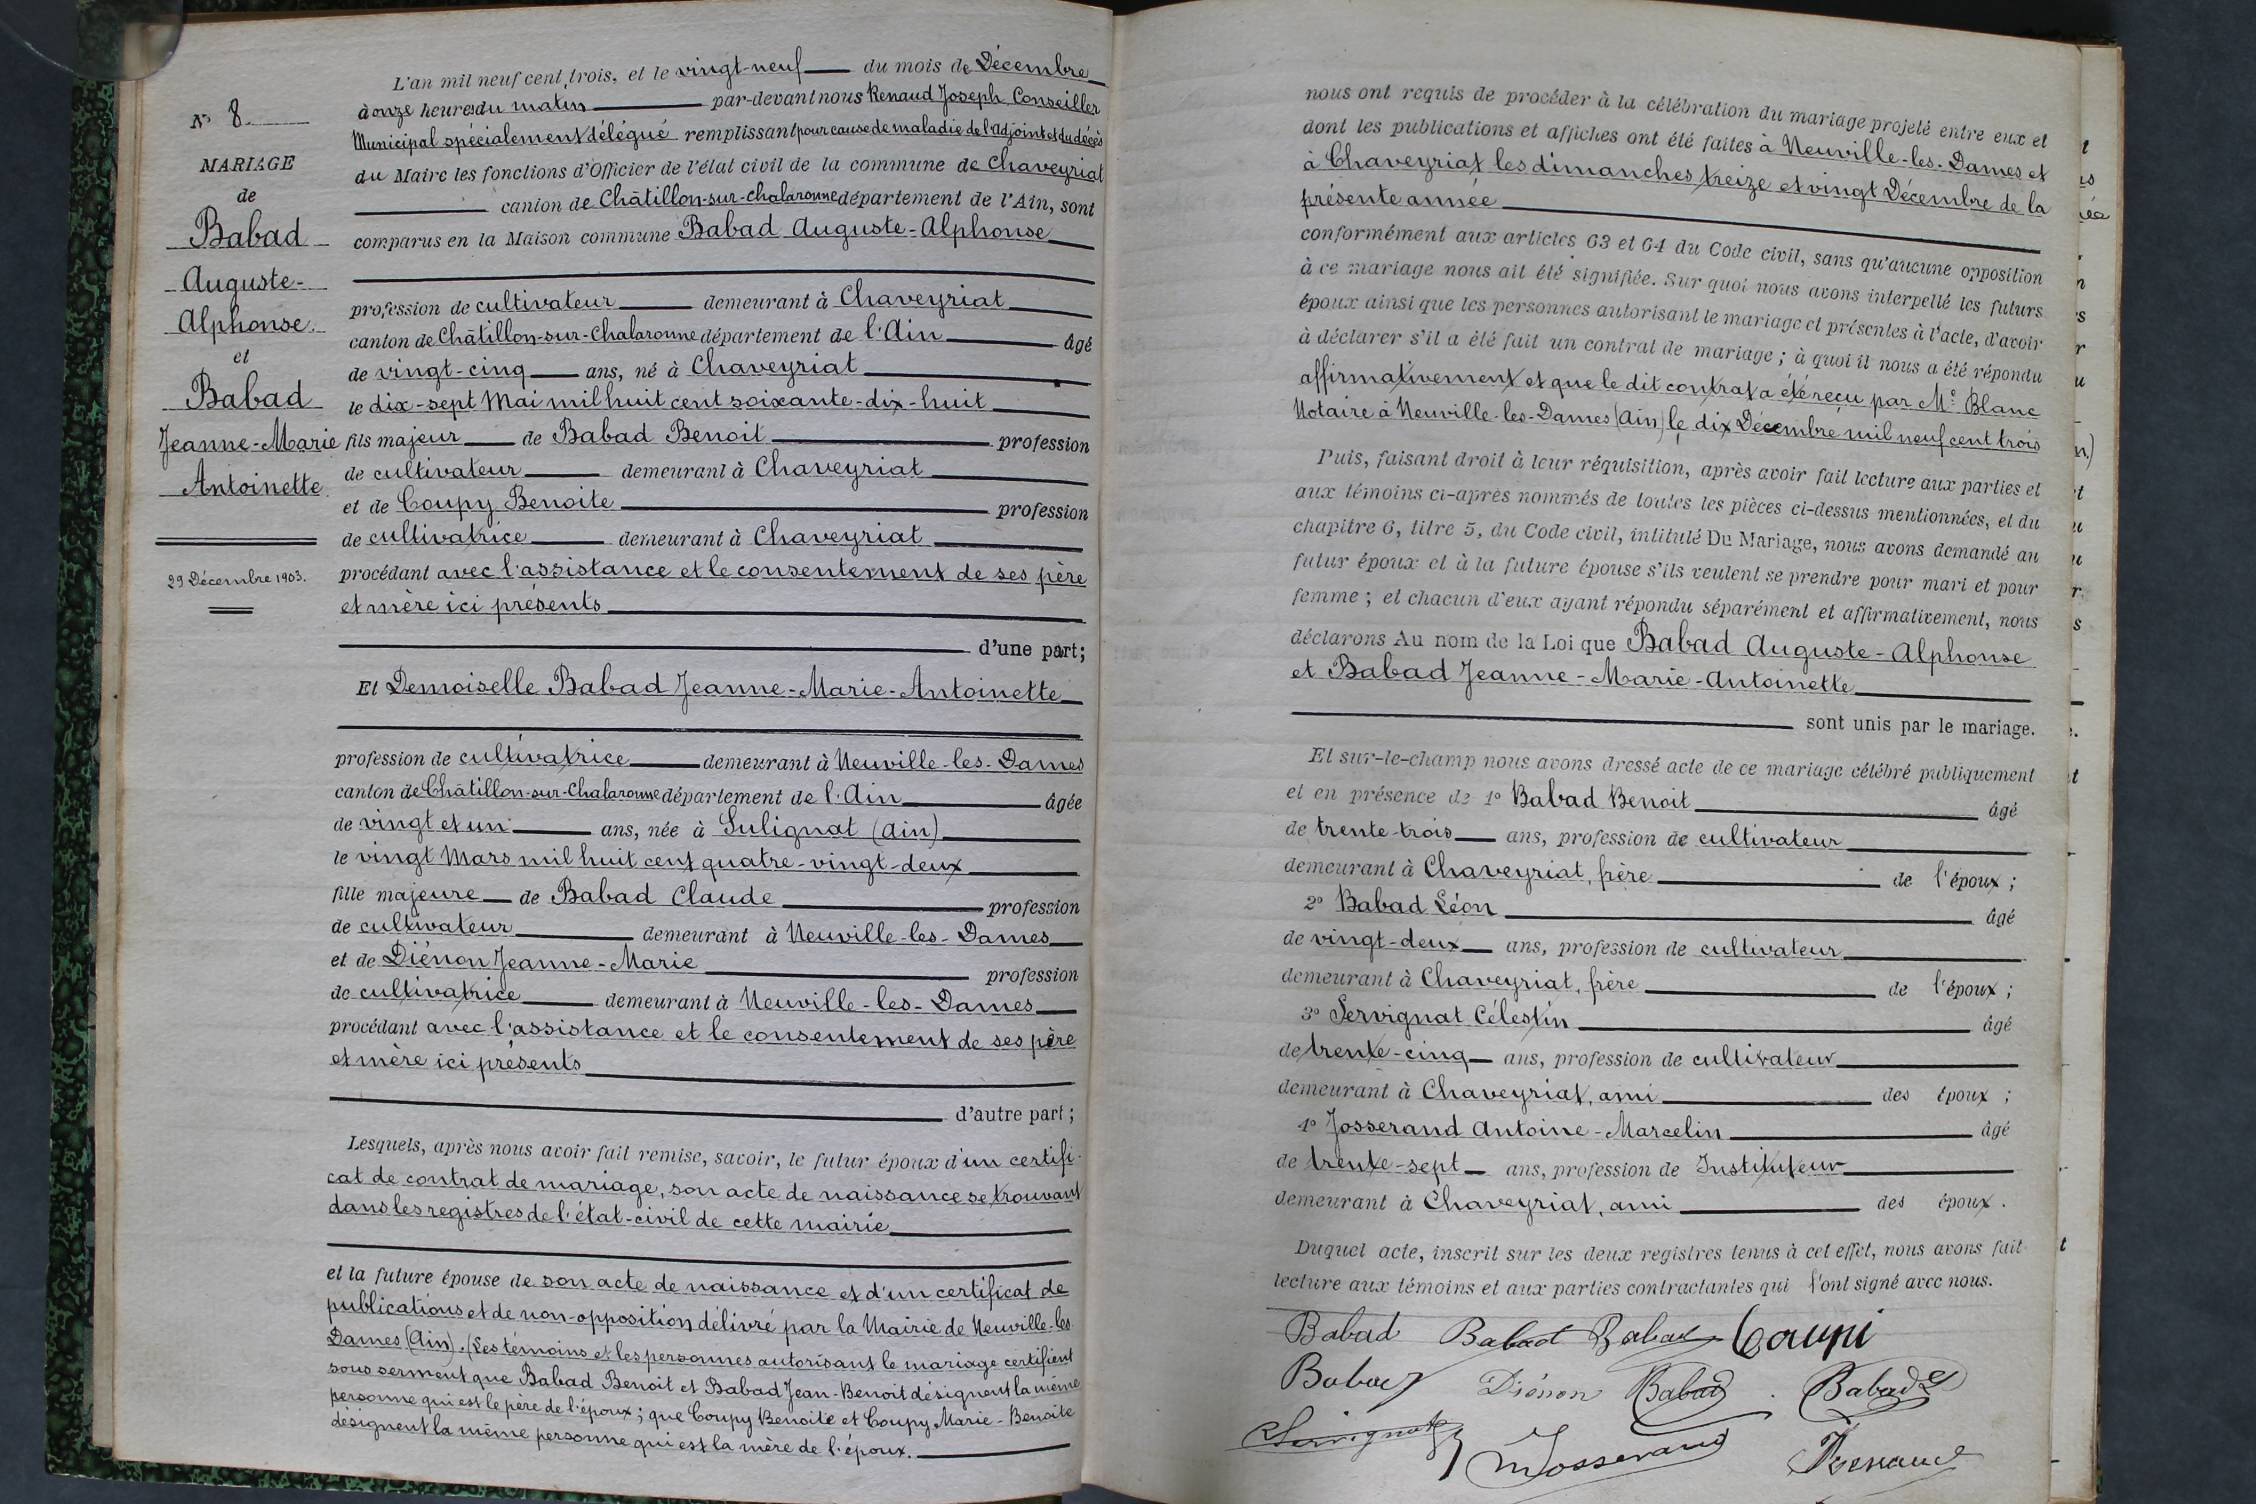 N° 8
MARIAGE
de
Babad
Auguste-
Alphonse.
et
Babad
Jeanne-Marie
Antoinette.
29 Décembre 1903.
L'an mil neuf cent trois, et le vingt-neuf du mois de Décembre
à onze heures du matin par-devant nous Renaud Joseph, Conseiller
Municipal spécialement délégué remplissant pour cause de maladie de l'Adjoint et du décès
du Maire les fonctions d'Officier de l'état civil de la commune de Chaveyriat
canton de Châtillon-sur-Chalaronne département de l'Ain, sont
comparus en la Maison commune Babad Auguste-Alphonse
profession de cultivateur demeurant à Chaveyriat
canton de Châtillon-sur-Chalaronne département de l'Ain âgé
de vingt-cinq ans, né à Chaveyriat
le dix-sept Mai mil huit cent soixante-dix-huit
fils majeur de Babad Benoit profession
de cultivateur demeurant à Chaveyriat
et de Coupy Benoite profession
de cultivatrice demeurant à Chaveyriat
procédant avec l'assistance et le consentement de ses père
et mère ici présents
d'une part;
Et Demoiselle Babad Jeanne-Marie-Antoinette
profession de cultivatrice demeurant à Neuville-les-Dames
canton de Châtillon-sur-Chalaronne département de l'Ain âgée
de vingt et un ans, née à Sulignat (Ain)
le vingt Mars mil huit cent quatre-vingt-deux
fille majeure de Babad Claude profession
de cultivateur demeurant à Neuville-les-Dames
et de Diénon Jeanne-Marie profession
de cultivatrice demeurant à Neuville-les-Dames
procédant avec l'assistance et le consentement de ses père
et mère ici présents
d'autre part;
Lesquels, après nous avoir fait remise, savoir, le futur époux d'un certifi-
cat de contrat de mariage, son acte de naissance se trouvant
dans les registres de l'état-civil de cette mairie
et la future épouse de son acte de naissance et d'un certificat de
publications et de non-opposition délivré par la Mairie de Neuville-les-
Dames (Ain). (Les témoins et les personnes autorisant le mariage certifient
sous serment que Babad Benoit et Babad Jean-Benoit désignent la même
personne qui est le père de l'époux; que Coupy Benoite et Coupy Marie-Benoite
désignent la même personne qui est la mère de l'époux.
nous ont requis de procéder à la célébration du mariage projeté entre eux et
dont les publications et affiches ont été faites à Neuville-les-Dames et
à Chaveyriat les dimanches treize et vingt Décembre de la
présente année
conformément aux articles 63 et 64 du Code civil, sans qu'aucune opposition
à ce mariage nous ait été signifiée. Sur quoi nous avons interpellé les futurs
époux ainsi que les personnes autorisant le mariage et présentes à l'acte, d'avoir
à déclarer s'il a été fait un contrat de mariage; à quoi il nous a été répondu
affirmativement et que le dit contrat a été reçu par Me Blanc
Notaire à Neuville-les-Dames (Ain) le dix Décembre mil neuf cent trois
Puis, faisant droit à leur réquisition, après avoir fait lecture aux parties et
aux témoins ci-après nommés de toutes les pièces ci-dessus mentionnées, et du
chapitre 6, titre 5, du Code civil, intitulé Du Mariage, nous avons demandé au
futur époux et à la future épouse s'ils veulent se prendre pour mari et pour
femme; et chacun d'eux ayant répondu séparément et affirmativement, nous
déclarons Au nom de la Loi que Babad Auguste-Alphonse
et Babad Jeanne-Marie-Antoinette
sont unis par le mariage.
Et sur-le-champ nous avons dressé acte de ce mariage célébré publiquement
et en présence de 1° Babad Benoit âgé
de trente-trois ans, profession de cultivateur
demeurant à Chaveyriat, frère de l'époux;
2° Babad Léon âgé
de vingt-deux ans, profession de cultivateur
demeurant à Chaveyriat, frère de l'époux;
3° Servignat Célestin âgé
de trente-cinq ans, profession de cultivateur
demeurant à Chaveyriat, ami des époux;
4° Josserand Antoine-Marcelin âgé
de trente-sept ans, profession de Instituteur
demeurant à Chaveyriat, ami des époux.
Duquel acte, inscrit sur les deux registres tenus à cet effet, nous avons fait
lecture aux témoins et aux parties contractantes qui l'ont signé avec nous.
Babad Babad Babad Coupi
Babad Diénon Babad Babad
Servignat Josserand Renaud